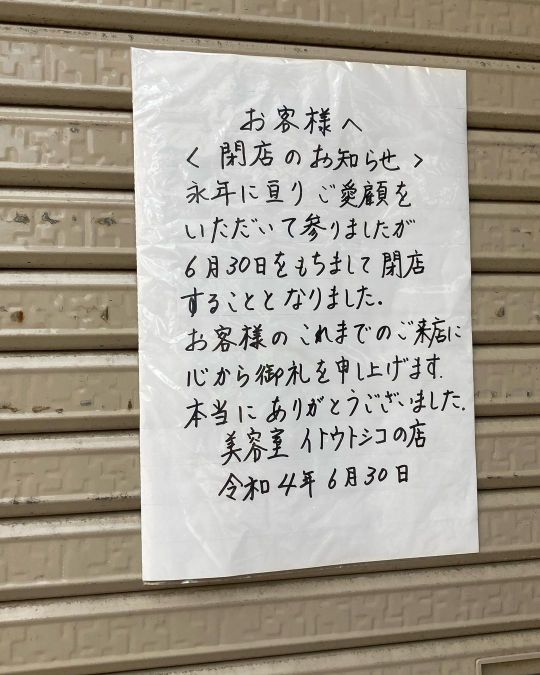 お客様へ
< 閉店のお知らせ >
永年に亘りご愛顧を
いただいて参りましたが
6月30日をもちまして閉店
することとなりました.
お客様のこれまでのご来店に
心から御礼を申し上げます.
本当にありがとうございました.
美容室 イトウトシコの店
令和4年6月30日